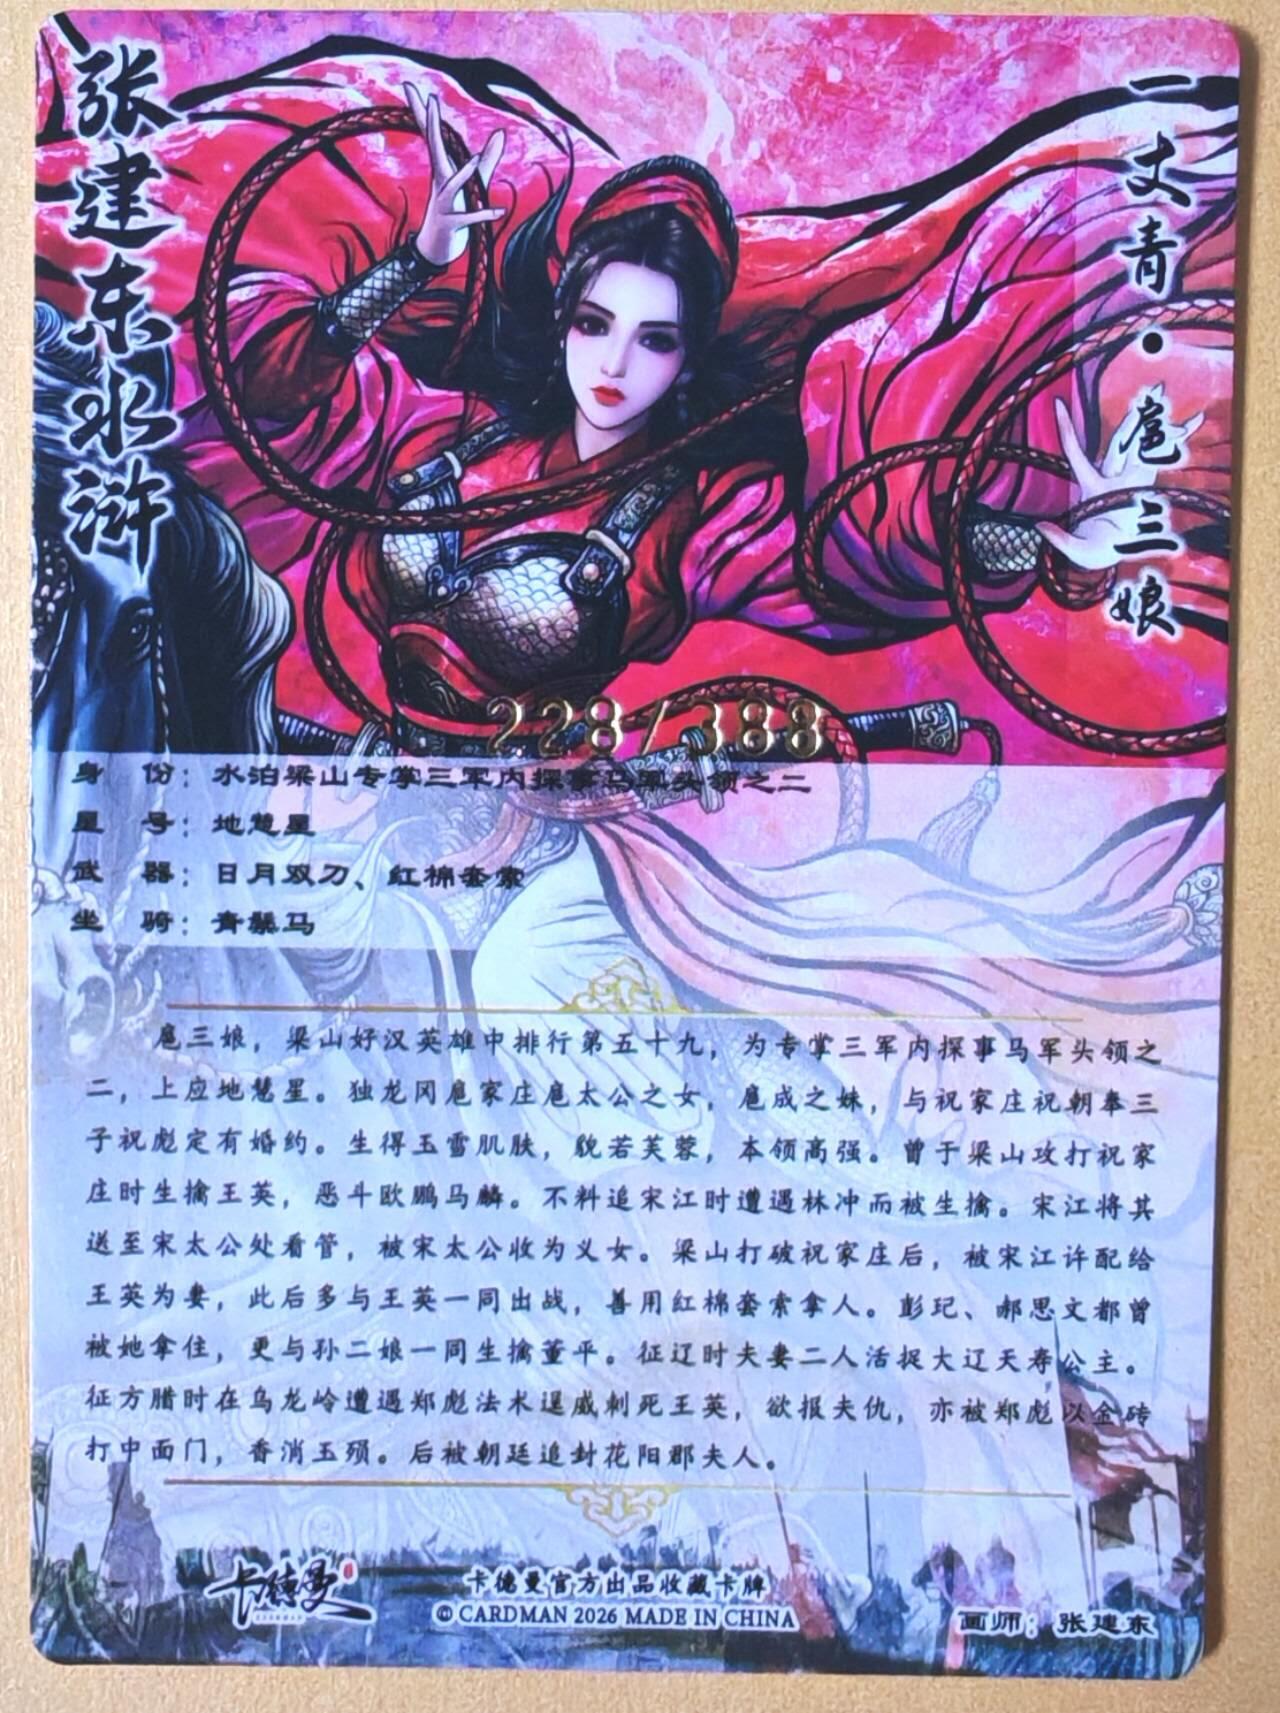 张建东水浒
一丈青·扈三娘
228/388
身 份：水泊梁山专掌三军内探事马军头领之二
星 号：地慧星
武 器：日月双刀、红棉套索
坐 骑：青鬃马
扈三娘，梁山好汉英雄中排行第五十九，为专掌三军内探事马军头领之
二，上应地慧星。独龙冈扈家庄扈太公之女，扈成之妹，与祝家庄祝朝奉三
子祝彪定有婚约。生得玉雪肌肤，貌若芙蓉，本领高强。曾于梁山攻打祝家
庄时生擒王英，恶斗欧鹏马麟。不料追宋江时遭遇林冲而被生擒。宋江将其
送至宋太公处看管，被宋太公收为义女。梁山打破祝家庄后，被宋江许配给
王英为妻，此后多与王英一同出战，善用红棉套索拿人。彭玘、郝思文都曾
被她拿住，更与孙二娘一同生擒董平。征辽时夫妻二人活捉大辽天寿公主。
征方腊时在乌龙岭遭遇郑彪法术逞威刺死王英，欲报夫仇，亦被郑彪以金砖
打中面门，香消玉殒。后被朝廷追封花阳郡夫人。
卡德曼
卡德曼官方出品收藏卡牌
© CARDMAN 2026 MADE IN CHINA
画师：张建东